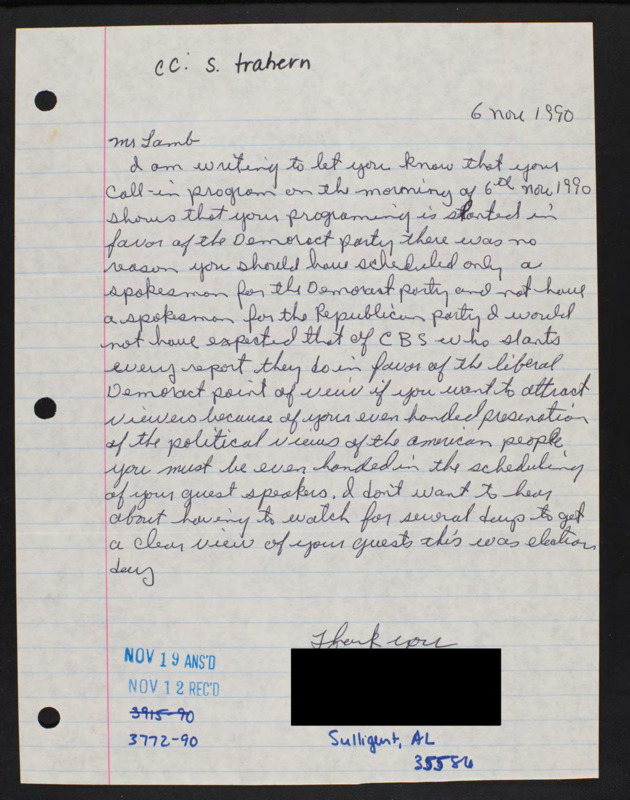 cc: S. trahern
6 nov 1990
Mr Lamb
I am writing to let you know that your
Call-in program on the morning of 6th nov 1990
shows that your programing is slanted in
favor of the Demoract party there was no
reason you should have scheduled only a
spokesman for the Demorast party and not have
a spoksman for the Republican party I would
not have expected that of CBS who slants
every report they do in favor of the liberal
Demoract point of veiw if you want to attract
viewers because of your even handed presenation
of the political views of the american people
you must be even handed in the scheduling
of your guest speakers. I don't want to hear
about having to watch for several days to get
a clear view of your guests this was election
day
Thank you
NOV 19 ANS'D
NOV 12 REC'D
3915-90
3772-90
Sulligent, AL
35586